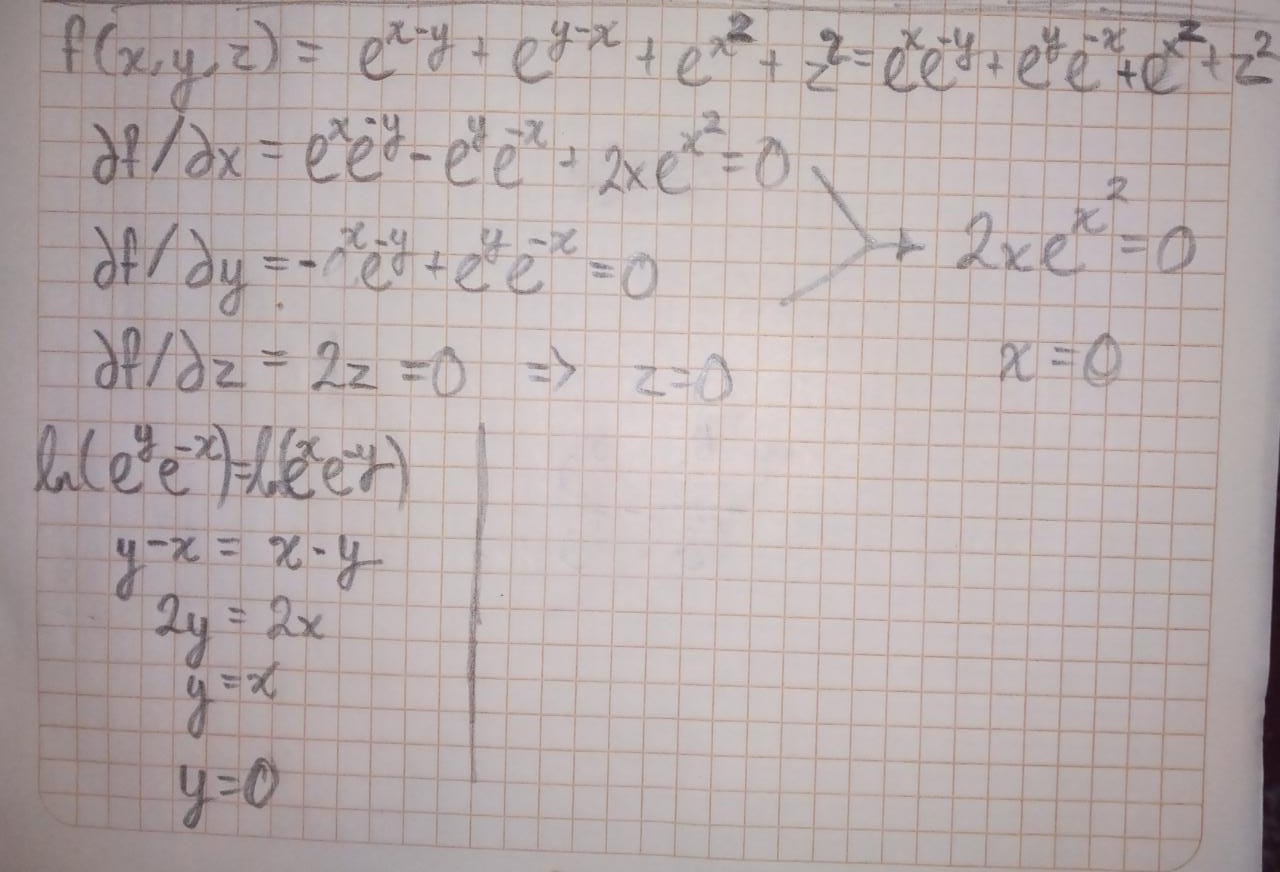 f(x,y,z) = e^{x-y} + e^{y-x} + e^{x^2} + z^2 = e^x e^{-y} + e^y e^{-x} + e^{x^2} + z^2
∂f/∂x = e^x e^{-y} - e^y e^{-x} + 2xe^{x^2} = 0
∂f/∂y = - e^x e^{-y} + e^y e^{-x} = 0 → 2xe^{x^2} = 0
∂f/∂z = 2z = 0 ⇒ z = 0 x = 0
ln(e^y e^{-x}) = l(e^x e^{-y})
y - x = x - y
2y = 2x
y = x
y = 0